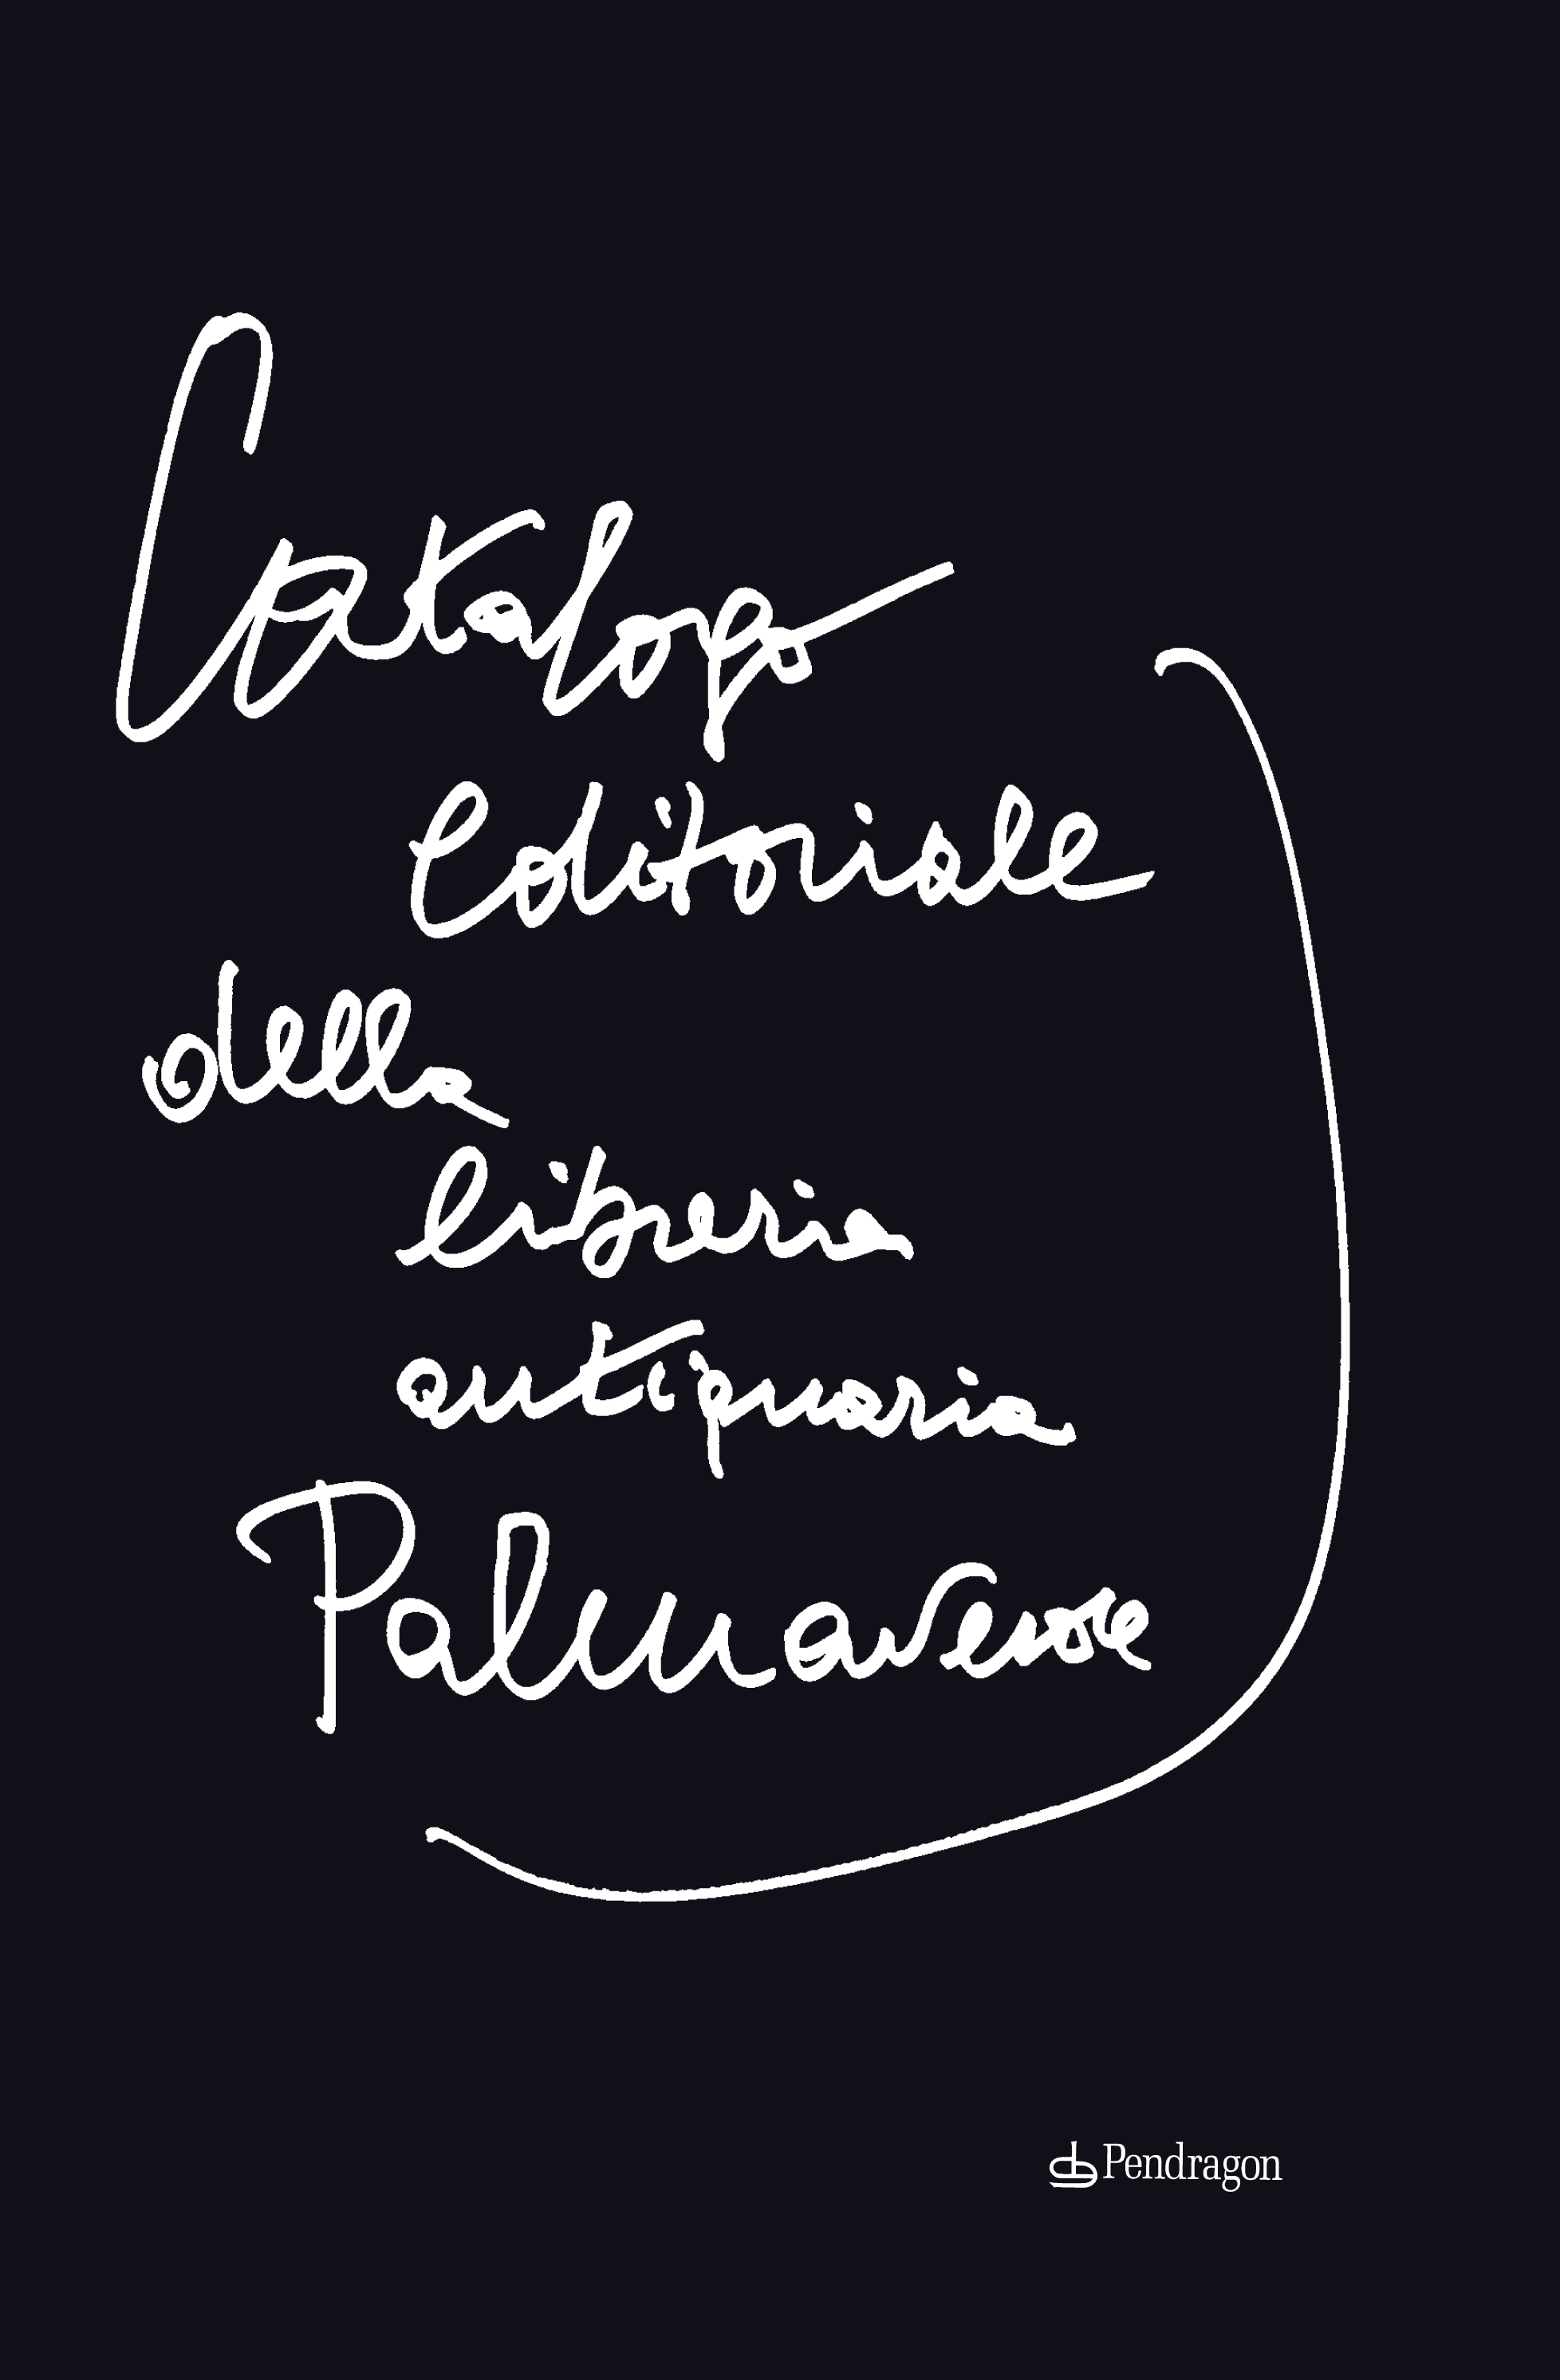 Catalogo
editoriale
della
libreria
antiquaria
Palmaverde
Pendragon